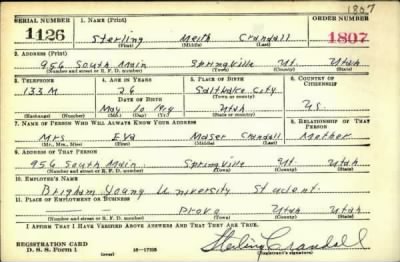 1807
SERIAL NUMBER 1. NAME (Print) ORDER NUMBER
1126 Sterling Meith Crandall 1807
(First) (Middle) (Last)
2. ADDRESS (Print)
956 South Main Springville Ut. Utah
(Number and street or R. F. D. number) (Town) (County) (State)
3. TELEPHONE 4. AGE IN YEARS 5. PLACE OF BIRTH 6. COUNTRY OF CITIZENSHIP
133M 26 Saltlake City
DATE OF BIRTH (Town or county)
May 10 1914 Utah U.S.
(Exchange) (Number) (Mo.) (Day) (Yr.) (State or country)
7. NAME OF PERSON WHO WILL ALWAYS KNOW YOUR ADDRESS 8. RELATIONSHIP OF THAT PERSON
Mrs. Eva Maser Crandall Mother
(Mr., Mrs., Miss) (First) (Middle) (Last)
9. ADDRESS OF THAT PERSON
956 South Main Springville Ut. Utah
(Number and street or R. F. D. number) (Town) (County) (State)
10. EMPLOYER'S NAME
Brigham Young University Student
11. PLACE OF EMPLOYMENT OR BUSINESS
— Provo Utah Utah
(Number and street or R. F. D. number) (Town) (County) (State)
I AFFIRM THAT I HAVE VERIFIED ABOVE ANSWERS AND THAT THEY ARE TRUE.
REGISTRATION CARD
D. S. S. Form 1 (over) Sterling Crandall
(Registrant's signature)